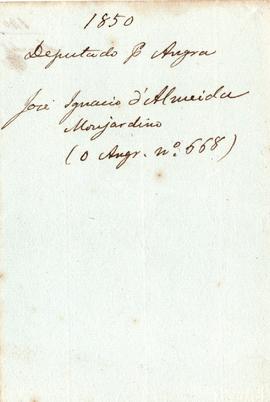 1850
Deputado p Angra
José Ignacio d'Almeida
Monjardino
(O Angr. nº 668)